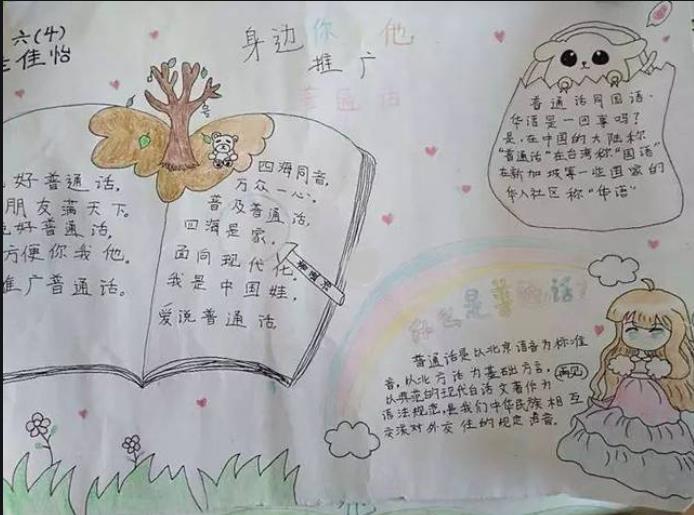 六(4)
佳怡
身边你 他
推广
普通话
好普通话,
朋友满天下。
好普通话,
方便你我他。
推广普通话。
四海同音,
万众一心。
普及普通话,
四海是家。
面向现代化。
我是中国娃,
爱说普通话
普通话同国语、
华语是一回事吗?
是,在中国的大陆称
"普通话"在台湾称"国语"
在新加坡等一些国家的
华人社区称"华语"
什么是普通话?
普通话是以北京语音为标准
音,以北方话为基础方言,
以典范的现代白话文著作为
语法规范,是我们中华民族相互
交流对外交往的规定语音。
再见